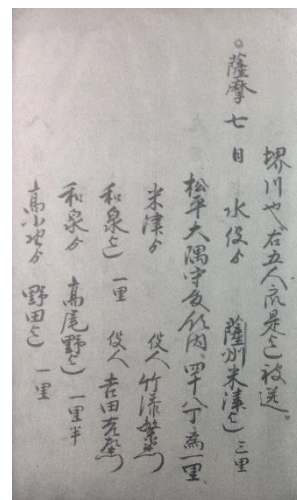 堺川也、右五人衆是ゟ被送
○薩摩七日 水俣ゟ 薩州米津迄 三里
松平大隅守殿領内、四十八丁為一里
米津ゟ 役人 竹添
和泉迄 一里 役人 吉田
和泉ゟ 高尾野迄 一里半
ゟ 野田迄 一里